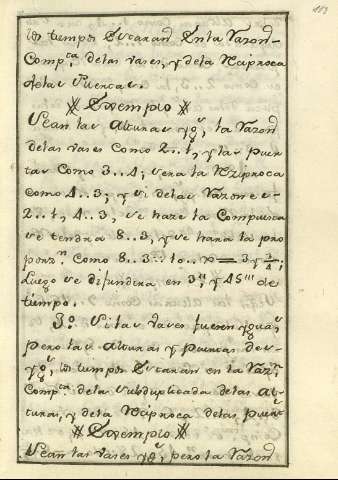 los tiempos Estaran En la Razon
Comp.ta delas vases, y dela Reciproca
delas Puertas.
Exemplo
Sean las Alturas yg.s, la Razon
delas vases como 2..1, y las puer
tas Como 3..4; sera la Reziproca
como 4..3; y si delas Razones
2..1, 4..3, se haze la Compuesta
se tendra 8..3, y se hara la pro
porz.n Como 8..3::10.. = 3 y 3/4;
Luego se difundera en 3, y 45 de
tiempo.
3.º Si las vases fueren yguas,
pero las Alturas y Puertas des-
yg.s, los tiempos Estaran en la Raz.n
Comp.ta dela Subduplicada delas Al-
turas, y dela Reciproca delas Puert
Exemplo
Sean las vases yg.s, pero la Razon